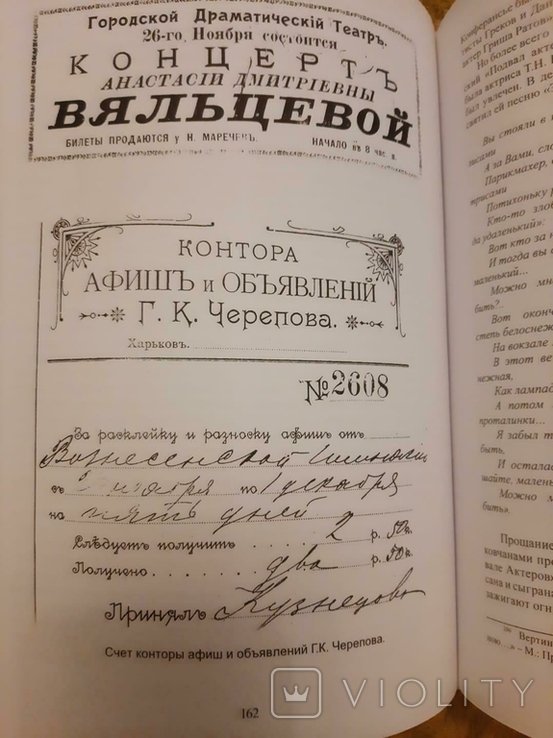 Городской Драматическій Театръ.
26-го Ноября состоится
КОНЦЕРТЪ
АНАСТАСІИ ДМИТРІЕВНЫ
ВЯЛЬЦЕВОЙ
БИЛЕТЫ ПРОДАЮТСЯ у Н. МАРЕЧЕКЪ. НАЧАЛО въ 8 час. в.
КОНТОРА
АФИШЪ и ОБЪЯВЛЕНІЙ
Г. К. Черепова.
Харьковъ.
№ 2608
За расклейку и разноску афишъ отъ
Вознесенской гимназіи
съ ноября по 1 декабря
на пять дней
Слѣдуетъ получить 2 р. 50 к.
Получено два р. 50 к.
Принялъ Кузнецова
Счет конторы афиш и объявлений Г.К. Черепова.
162
Конферансье
исты Греков и
актер Гриша
Но более всего
ский «Подвал
была актриса Т.Н.
был увлечен. В
святил ей песню
Вы стояли в
рисами
А за Вами,
Парикмахер,
трисами
Потихоньку
Кто-то
да удаленький»:
Вот кто за
И тогда вы
маленький...
Можно
бить?..
Вот
степь
На вокзале
В этот
нежная,
Как
А потом
проталинки...
Я забыл
быть,
И
шайте,
Можно
бить».
Прощание
ковчанами
вале
сана и
зажигают
– М.:
VIOLITY